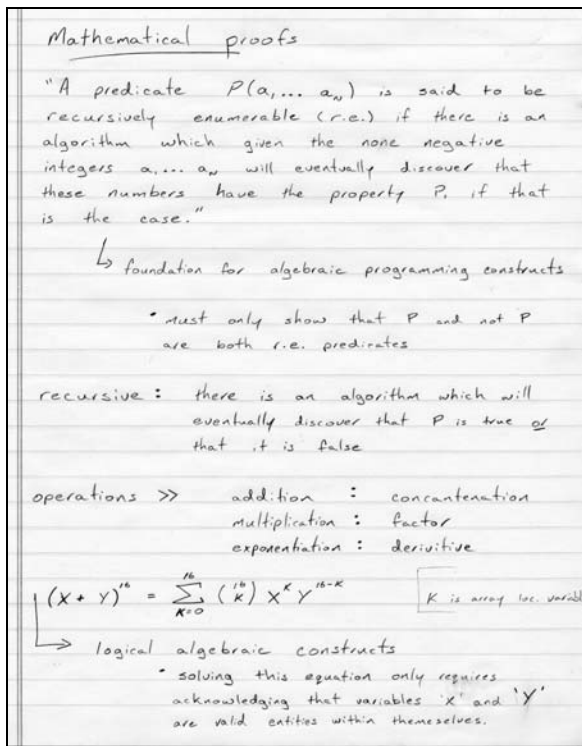 Mathematical proofs
"A predicate P(a, ... aₙ) is said to be
recursively enumerable (r.e.) if there is an
algorithm which given the none negative
integers a, ... aₙ will eventually discover that
these numbers have the property P, if that
is the case."
↳ foundation for algebraic programming constructs
• must only show that P and not P
are both r.e. predicates
recursive : there is an algorithm which will
eventually discover that P is true or
that it is false
operations >> addition : concantenation
multiplication : factor
exponentiation : derivitive
(X + Y)¹⁶ = ∑ₖ₌₀¹⁶ (16 K) Xᴷ Y¹⁶⁻ᴷ [K is array loc. variabl
↳ logical algebraic constructs
• solving this equation only requires
acknowledging that variables 'X' and 'Y'
are valid entities within themeselves.